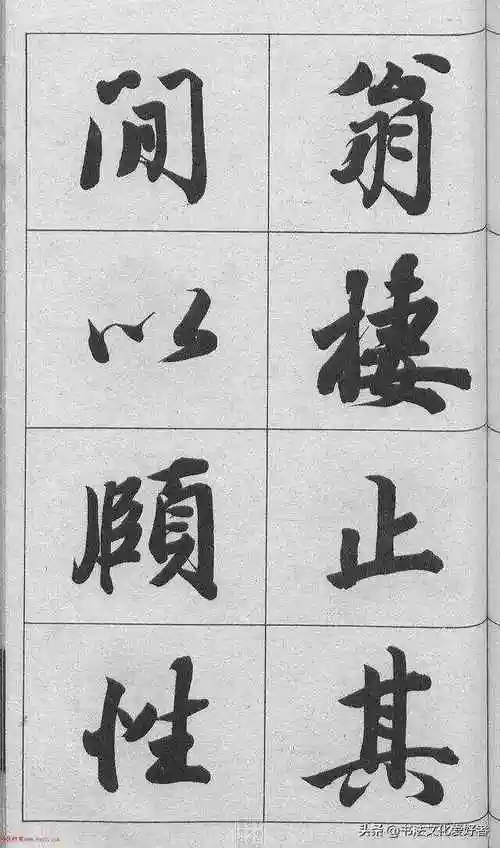 翁棲止其
間以頤性
头条@书法文化爱好者